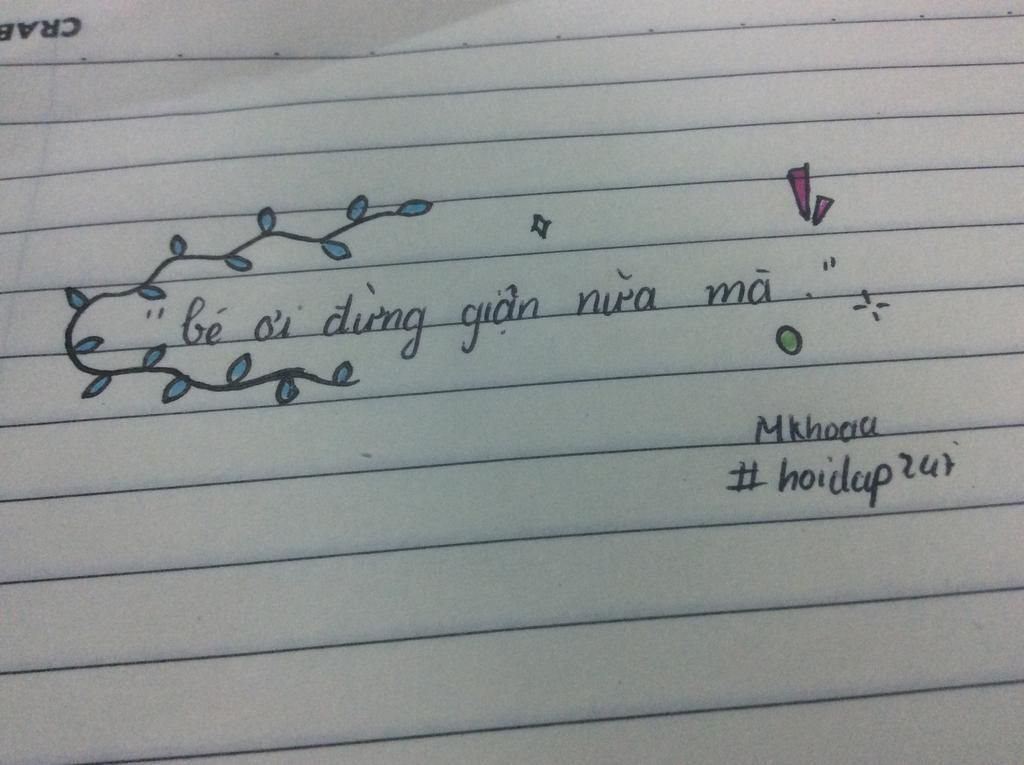 CRAB
"bé ơi đừng giận nữa mà."
Mkhoaa
#hoidap247